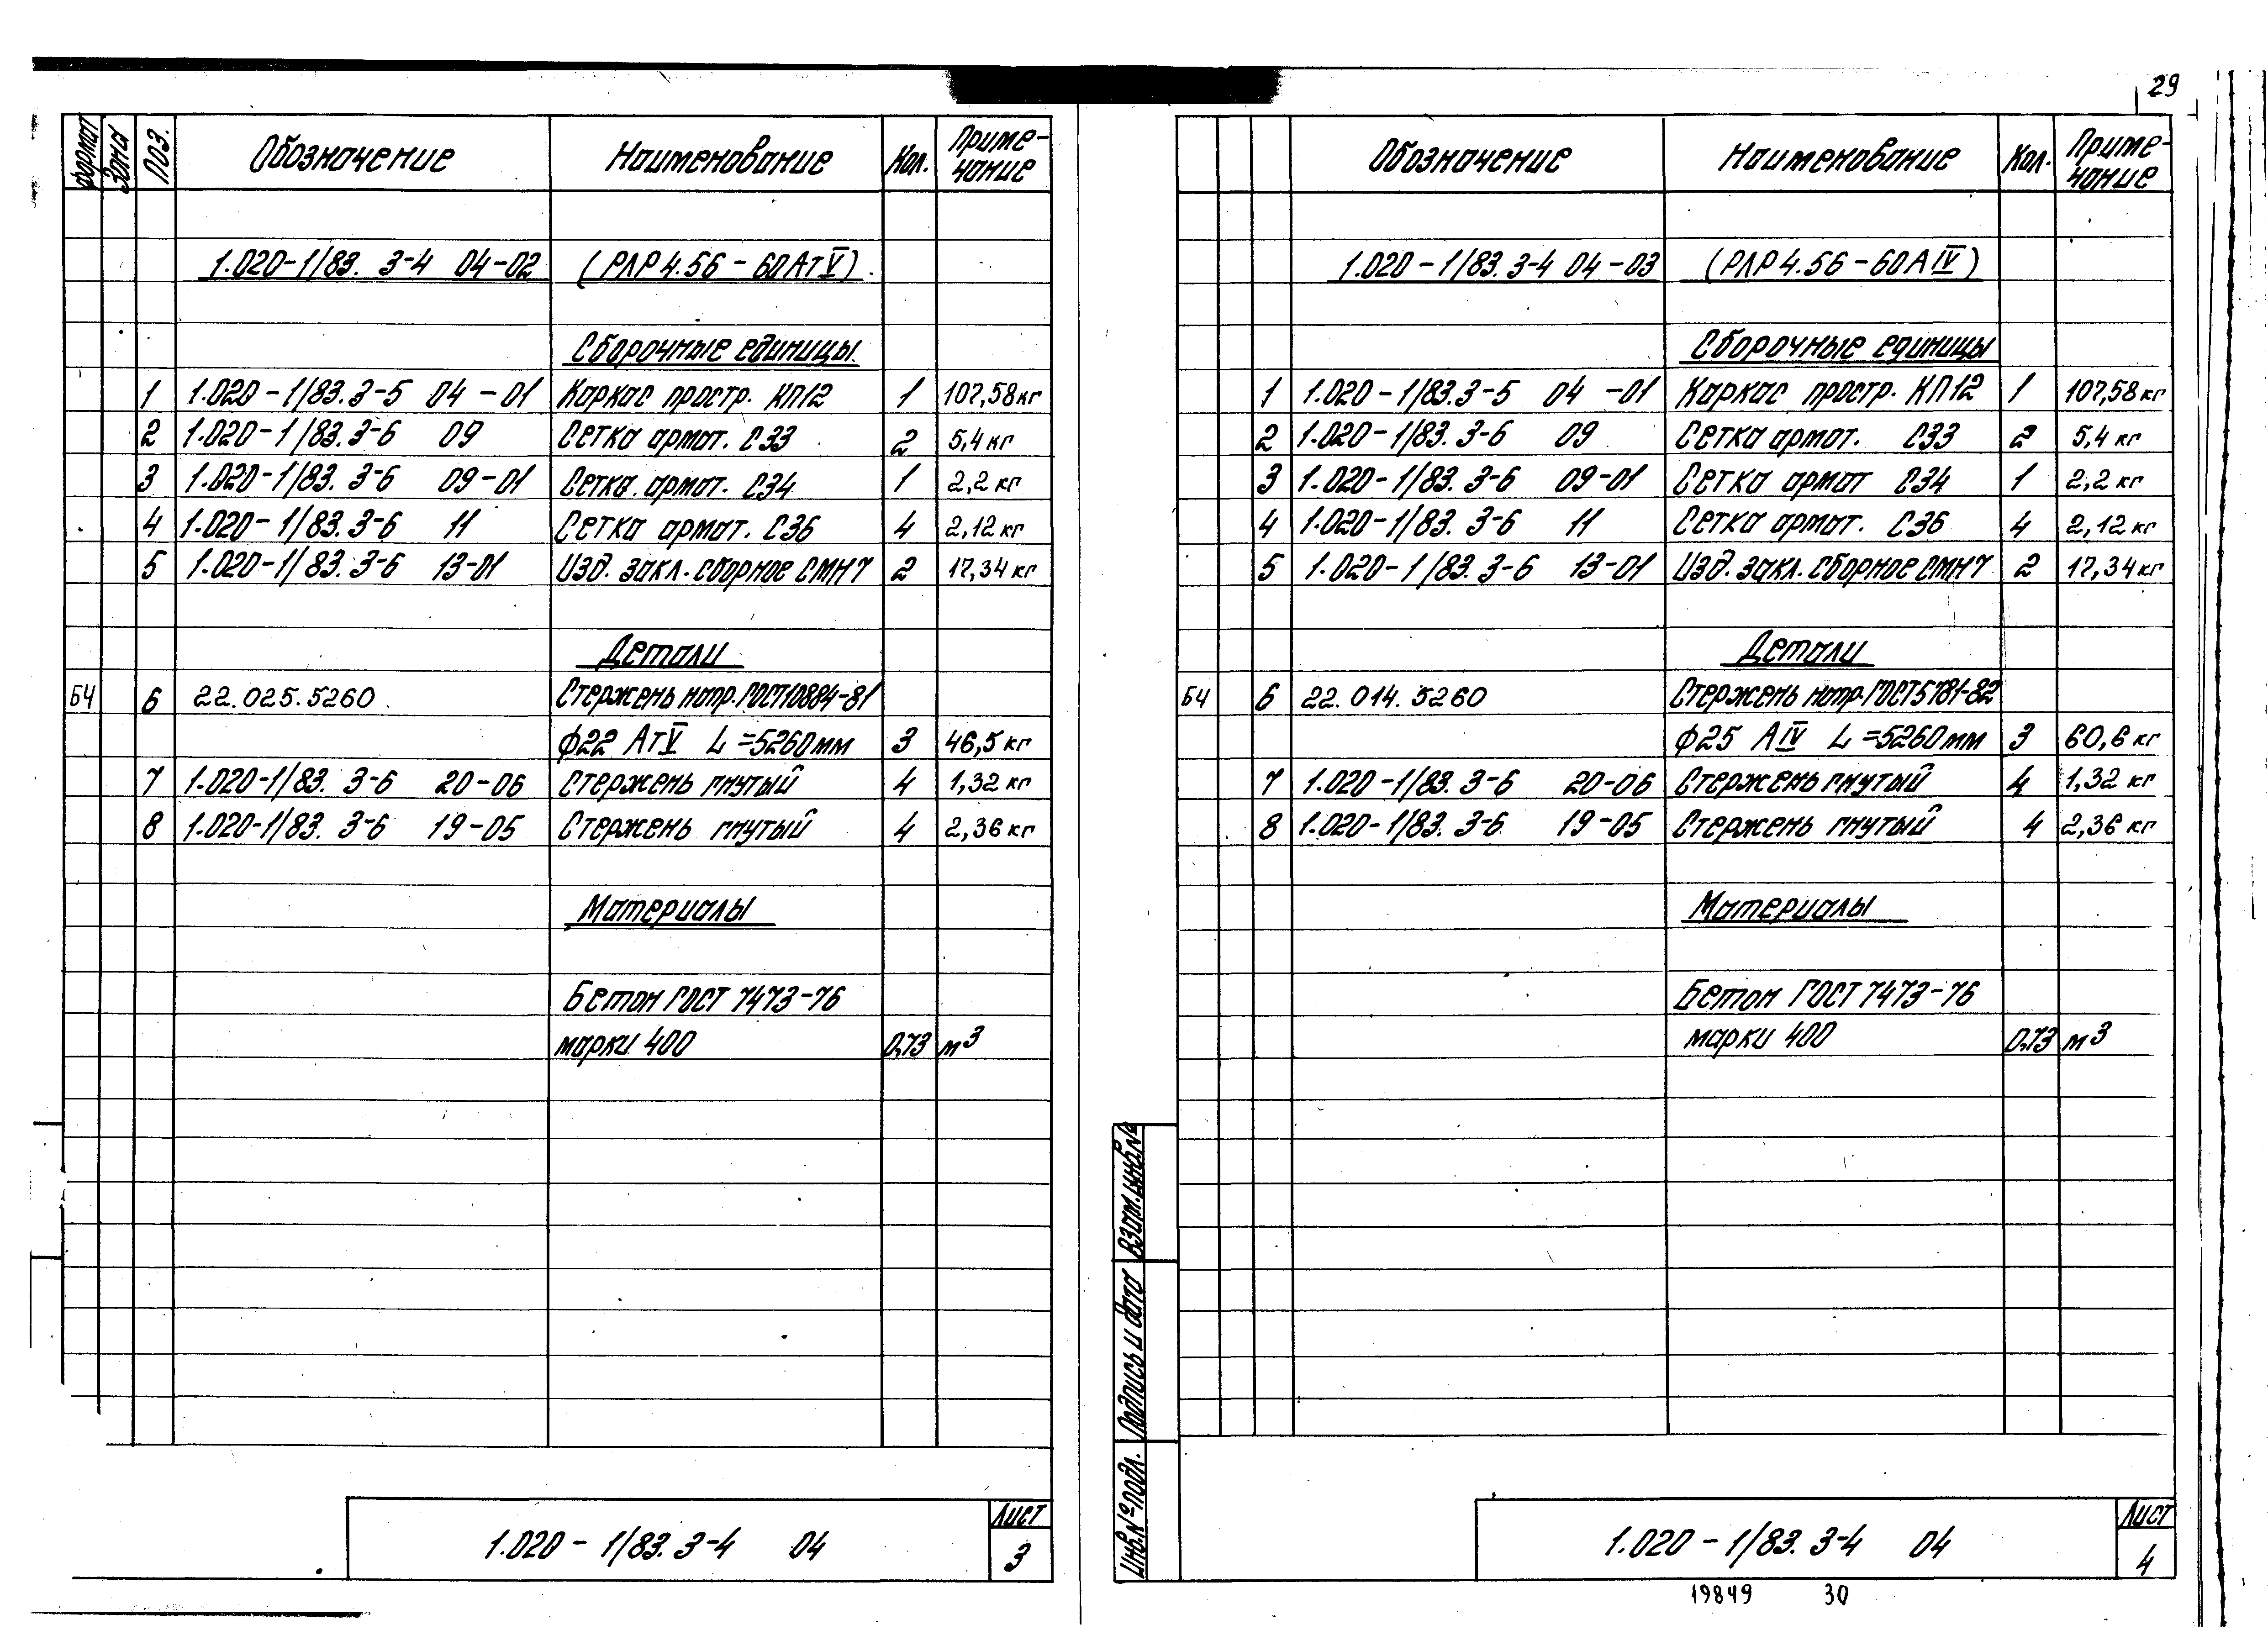 29
формат Зона Поз. Обозначение Наименование Кол. Приме-
чание
1.020-1/83. 3-4 04-02 (РЛР4.56-60АтV)
Сборочные единицы
1 1.020-1/83.3-5 04-01 Каркас простр. КП12 1 107,58кг
2 1.020-1/83. 3-6 09 Сетка армат. С33 2 5,4 кг
3 1.020-1/83. 3-6 09-01 Сетка. армат. С34 1 2,2 кг
4 1.020-1/83. 3-6 11 Сетка армат. С36 4 2,12 кг
5 1.020-1/83. 3-6 13-01 Изд. закл. сборное СМН7 2 17,34 кг
Детали
БЧ 6 22.025.5260 Стержень напр. ГОСТ10884-81
ф22 АтV L=5260мм 3 46,5 кг
7 1.020-1/83. 3-6 20-06 Стержень гнутый 4 1,32 кг
8 1.020-1/83. 3-6 19-05 Стержень гнутый 4 2,36 кг
Материалы
Бетон ГОСТ 7473-76
марки 400 0,73 м³
1.020-1/83. 3-4 04
Лист
3
Обозначение Наименование Кол. Приме-
чание
1.020-1/83. 3-4 04-03 (РЛР4.56-60АIV)
Сборочные единицы
1 1.020-1/83.3-5 04-01 Каркас простр. КП12 1 107,58 кг
2 1.020-1/83. 3-6 09 Сетка армат. С33 2 5,4 кг
3 1.020-1/83. 3-6 09-01 Сетка армат С34 1 2,2 кг
4 1.020-1/83. 3-6 11 Сетка армат. С36 4 2,12 кг
5 1.020-1/83. 3-6 13-01 Изд. закл. сборное СМН7 2 17,34 кг
Детали
БЧ 6 22.014.5260 Стержень напр. ГОСТ5781-82
ф25 АIV L=5260мм 3 60,6 кг
7 1.020-1/83. 3-6 20-06 Стержень гнутый 4 1,32 кг
8 1.020-1/83. 3-6 19-05 Стержень гнутый 4 2,36 кг
Материалы
Бетон ГОСТ 7473-76
марки 400 0,73 м³
Взам. инв. №
Подпись и дата
Инв. № подл.
1.020-1/83. 3-4 04
Лист
4
19849 30